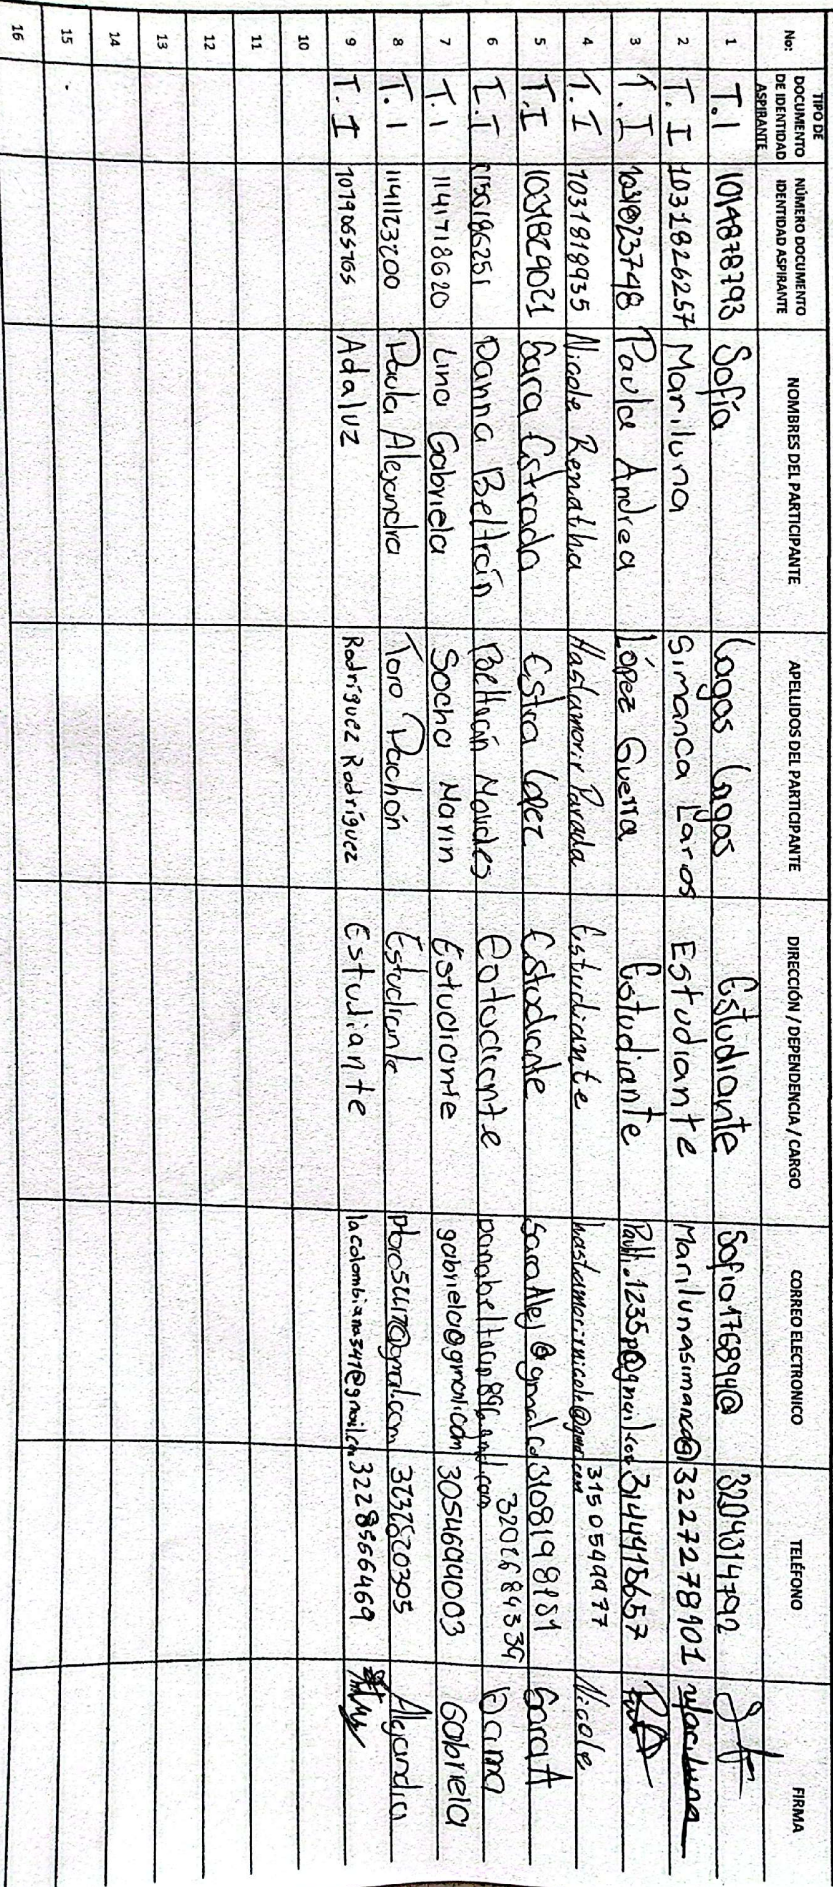 No: TIPO DE DOCUMENTO DE IDENTIDAD ASPIRANTE NÚMERO DOCUMENTO IDENTIDAD ASPIRANTE NOMBRES DEL PARTICIPANTE APELLIDOS DEL PARTICIPANTE DIRECCIÓN / DEPENDENCIA / CARGO CORREO ELECTRONICO TELÉFONO FIRMA
1 T.I 1014878793 Sofía Lagos Lagos Estudiante Sofia176894@ 3204314792
2 T.I 1031826257 Mariluna Simanca Laros Estudiante Marilunasimanca@ 3227278901 Mariluna
3 T.I 1031823748 Paula Andrea López Guerra Estudiante 3144915657
4 T.I 1031818935 Nicole Estudiante hastamorirnicole@gmail.com 3150549977 Nicole
5 T.I 1031829021 Sara Estrada Estra Lopez Estudiante 3108198151 Sara A
6 T.I Danna Beltrán Beltrán Estudiante Danna
7 T.I 1141718620 Lina Gabriela Socha Marin Estudiante gabriela@gmail.com 3054694003 Gabriela
8 T.I 1141123200 Paula Alejandra Toro Pachón Estudiante Alejandra
9 T.I Adaluz Rodríguez Rodríguez Estudiante lacolombiana347@gmail.com 3228966469
10
11
12
13
14
15
16